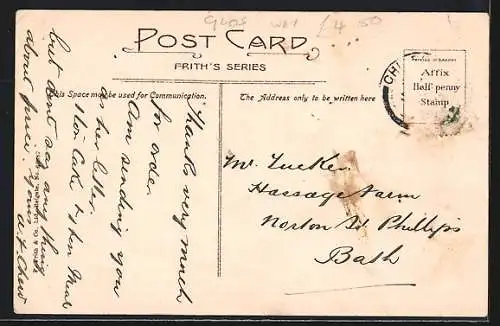 GLOS WAY £4 50
POST CARD
FRITH'S SERIES
This Space may be used for Communication.
The Address only to be written here
Affix
Half-penny
Stamp
CHI
Thanks very much
for order.
Am sending you
a her letter.
Slor Cake to her near
but don't say anything
about price. Yours
Mr. Tucker.
Hassage Farm
Norton St Phillips
Bath